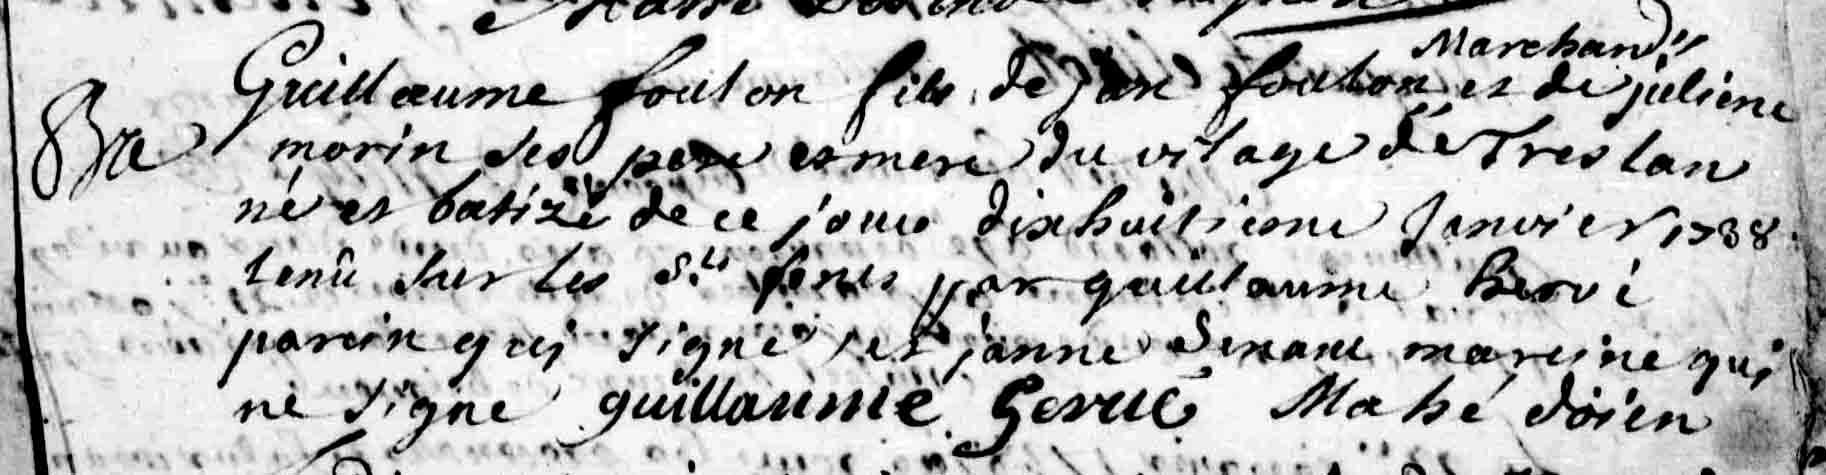 Marchands
Guillaume foulon fils de Jan foulon et de juliene
Bre morin ses pere et mere du vilage de Treslan
né et batizé de ce jour dixhuitieme Janvier 1738
tenû sur les Sts fonts par guillaume hervé
parein qui signe et janne mareine qui
ne signe guillaume herve Mahé doien